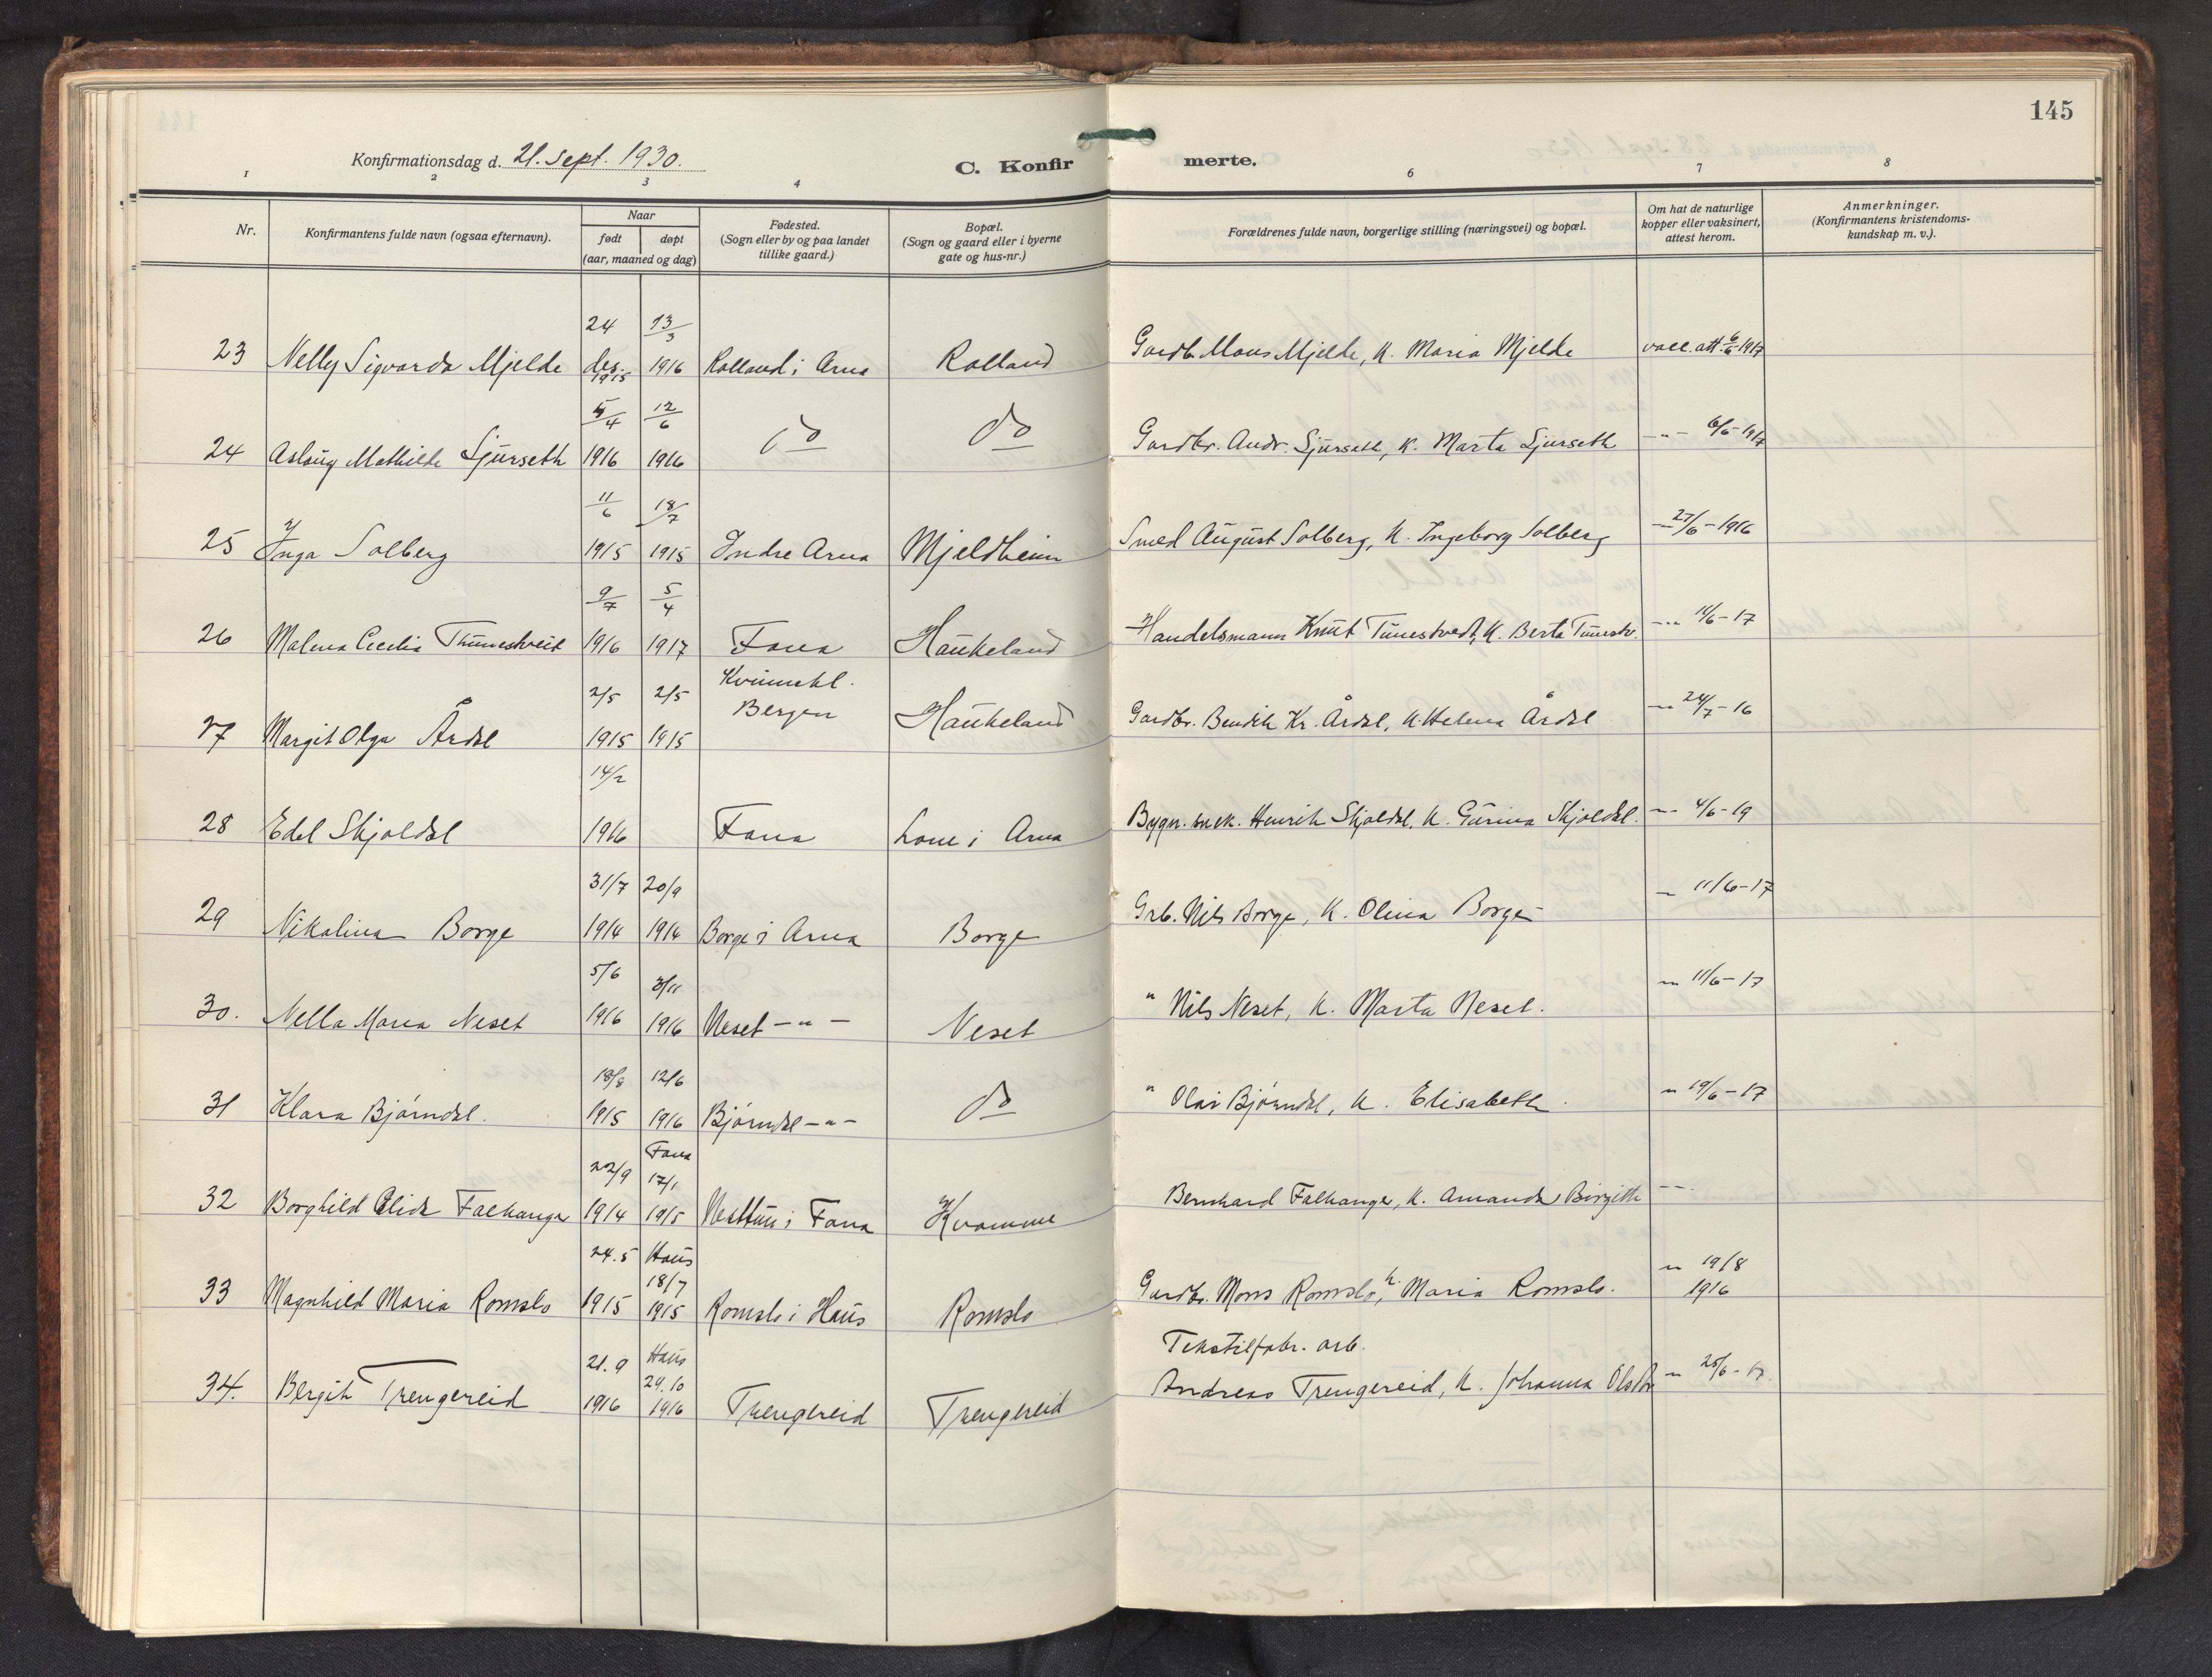 145
Konfirmationsdag d. 21. sept. 1930.
C. Konfirmerte.
1 2 3 4 6 7 8
Nr.
Konfirmantens fulde navn (ogsaa efternavn).
Naar
født døpt
(aar, maaned og dag)
Fødested.
(Sogn eller by og paa landet
tillike gaard.)
Bopæl.
(Sogn og gaard eller i byerne
gate og hus-nr.)
Forældrenes fulde navn, borgerlige stilling (næringsvei) og bopæl.
Om hat de naturlige
kopper eller vaksinert,
attest herom.
Anmerkninger.
(Konfirmantens kristendoms-
kundskap m. v.).
24 13/3
23 Nelly Sigvarda Mjelde des. 1915 1916 Rolland i Arna Rolland Gardbr. Mons Mjelde, K. Maria Mjelde vacc. att. 6/6-1917
5/4 12/6
24 Aslaug Mathilde Sjurseth 1916 1916 do do Gardbr. Andr. Sjurseth, K. Marta Sjurseth -"- 6/6-1917
11/6 18/7
25 Inga Solberg 1915 1915 Indre Arna Mjeldheim Smed August Solberg, K. Ingeborg Solberg -"- 27/6-1916
9/7 5/4
26 Malena Cecilia Thunestveit 1916 1917 Fana Haukeland Handelsmann Knut Tunestvedt, K. Berta Tunestv. -"- 11/6-17
2/5 2/5 Kvinnekl.
27 Margit Olga Årdal 1915 1915 Bergen Haukeland Gardbr. Bendik Kr. Årdal, K. Helena Årdal -"- 24/7-16
14/2
28 Edel Skjoldal 1916 Fana Lone i Arna Bygn. snek. Henrik Skjoldal, K. Gurina Skjoldal. -"- 4/6-19
31/7 20/9
29 Nikolina Borge 1914 1914 Borge i Arna Borge Grb. Nils Borge, K. Olina Borge -"- 11/6-17
5/6 3/11
30. Nella Maria Neset 1916 1916 Neset -"- Neset " Nils Neset, K. Marta Neset. -"- 11/6-17
18/8 12/6
31 Klara Bjørndal. 1915 1916 Bjørndal -"- do " Olai Bjørndal, K. Elisabeth. " 19/6-17
22/9 Fana 17/1
32 Borghild Elida Falkanger 1914 1915 Nesttun i Fana Kvamme Bernhard Falkanger, K. Amanda Birgithe -"-
24.5 Haus 18/7
33 Magnhild Maria Romslo 1915 1915 Romslo i Haus Romslo Gardbr. Mons Romslo, K. Maria Romslo. " 19/8 1916
21.9 Haus 29.10 Tekstilfabr. arb.
34. Bergit Trengereid 1916 1916 Trengereid Trengereid Andreas Trengereid, K. Johanna " 25/6-17.